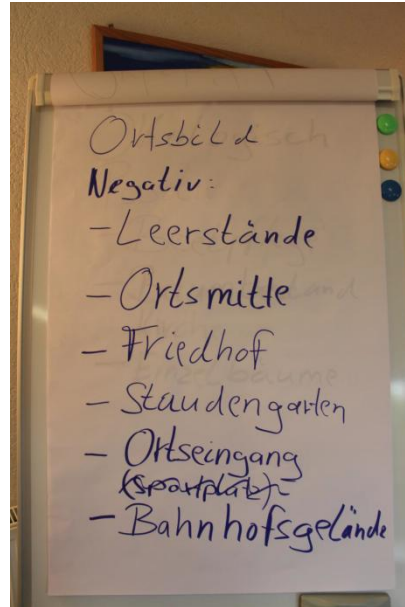 Ortsbild
Negativ:
- Leerstände
- Ortsmitte
- Friedhof
- Staudengarten
- Ortseingang
(Sportplatz)
- Bahnhofsgelände